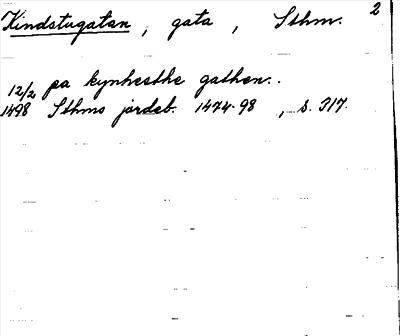 Kindstugatan, gata, Sthm. 2
12/2 pa kynhesthe gathen..
1498 Sthms jordeb. 1474-98, s. 317.